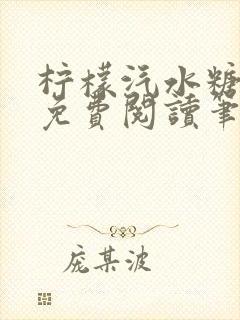 柠檬汽水糖
免費閱讀筆
庞某波